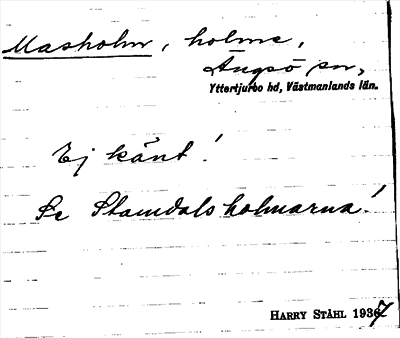 Masholm, holme,
Ängsö sn,
Yttertjurbo hd, Västmanlands län.
Ej känt!
Se Stamdalsholmarna!
HARRY STÅHL 1937